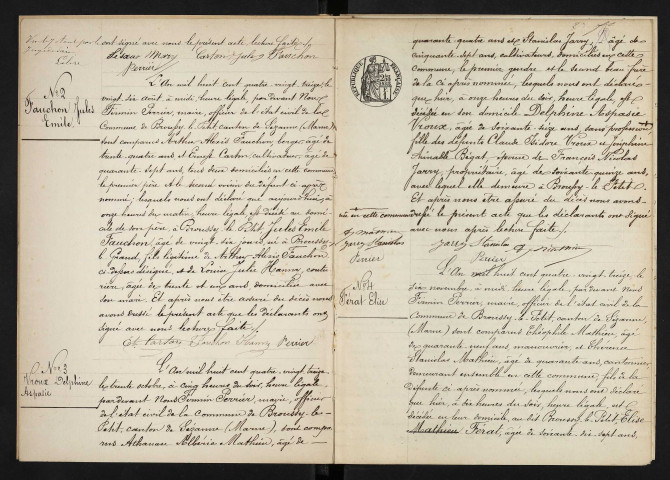 ont signé avec nous le présent acte lecture faite
Fauchon
Perrier
N° 2
Fauchon Jules
Emile
L'An mil huit cent quatre vingt treize, le
vingt six août, à midi heure légale, par devant Nous
Firmin Perrier, maire, officier de l'état civil de la
Commune de Broussy-le-Petit, canton de Sézanne (Marne)
sont comparus Arthur Alexis Fauchon, berger, âgé de
trente quatre ans et Ernest Carton, cultivateur, âgé de
quarante sept ans, tous deux domiciliés en cette commune
le premier père et le second voisin du défunt ci après
nommé; lesquels nous ont déclaré que aujourd'hui, à
onze heures du matin, heure légale, est décédé au domi-
cile de son père, à Broussy-le-Petit Jules Emile
Fauchon, âgé de vingt six jours, né à Broussy-
le-Grand, fils légitime de Arthur Alexis Fauchon
ci-dessus désigné, et de Louise Julie Hanra, coutu-
rière, âgée de trente et un ans domiciliée avec
son mari. Et après nous être assuré du décès nous
avons dressé le présent acte que les déclarants ont
signé avec nous lecture faite.
Et Carton Fauchon Perrier
N° 3
Vroux Delphine
Aspasie
L'An mil huit cent quatre vingt treize
le trente octobre, à cinq heures du soir, heure légale,
par devant Nous Firmin Perrier, maire, officier
de l'état civil de la Commune de Broussy-le-
Petit, canton de Sézanne (Marne), sont compa-
rus Athanase Albéric Mathieu, âgé de
quarante quatre ans et Stanislas Jarry, âgé de
cinquante sept ans, cultivateurs, domiciliés en cette
commune, le premier gendre et le second beau frère
de la ci après nommée, lesquels nous ont déclaré
que hier, à onze heures du soir, heure légale, est
décédée en son domicile Delphine Aspasie
Vroux, âgée de soixante seize ans, sans profession
fille des défunts Claude Isidore Vroux et Joséphine
Bigot, épouse de François Nicolas
Jarry, propriétaire, âgé de soixante quinze ans,
avec lequel elle demeure à Broussy-le-Petit.
Et après nous être assuré du décès nous avons
dressé le présent acte que les déclarants ont signé
avec nous après lecture faite.
née en cette commune
Jarry Stanislas
Perrier
Jarry Stanislas
Perrier
RÉPUBLIQUE FRANÇAISE
N° 4
Férat Elise
L'An mil huit cent quatre vingt treize, le
dix novembre, à midi heure légale, par devant Nous
Firmin Perrier, maire, officier de l'état civil de la
Commune de Broussy-le-Petit, canton de Sézanne,
(Marne) sont comparus Théophile Mathieu, âgé
de quarante neuf ans, manouvrier et Florence
Stanislas Mathieu, âgé de quarante ans, cantonnier
demeurant ensemble en cette commune, fils de la
défunte ci après nommée, lesquels nous ont déclaré
que hier, à dix heures du soir, heure légale, est
décédée en leur domicile, au dit Broussy-le-Petit, Elise
Mathieu Férat, âgée de soixante dix sept ans,